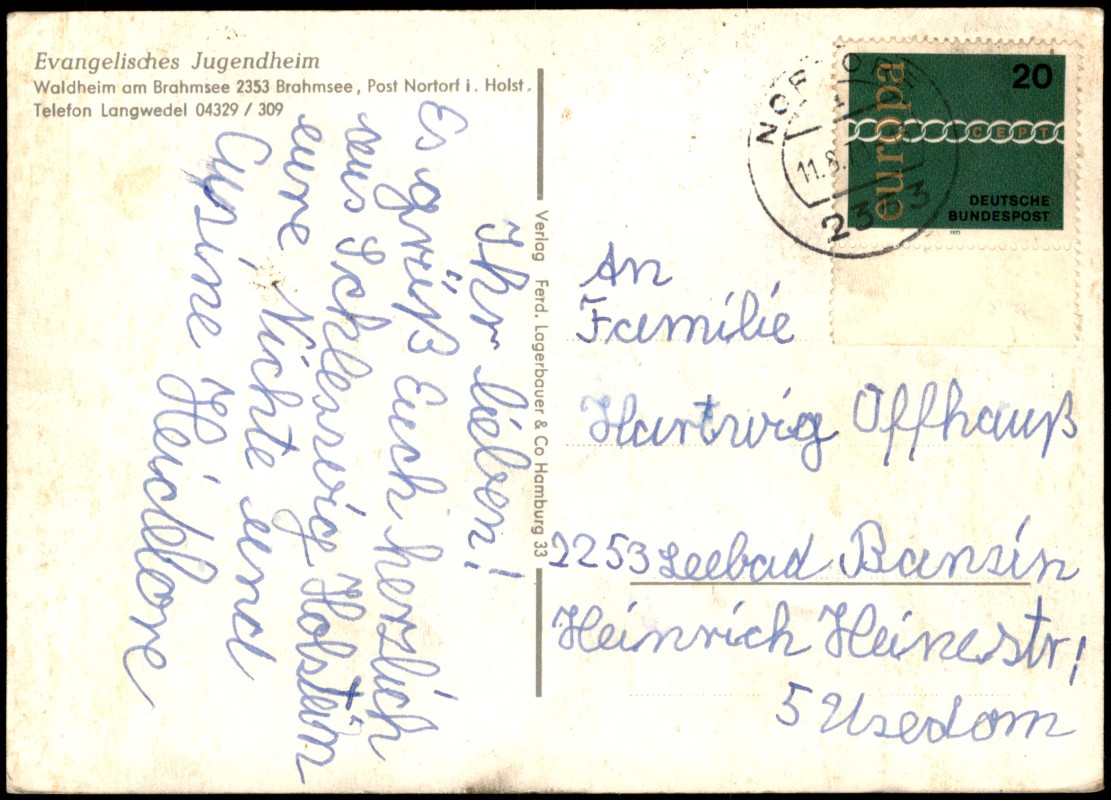 Evangelisches Jugendheim
Waldheim am Brahmsee 2353 Brahmsee, Post Nortorf i. Holst.
Telefon Langwedel 04329 / 309
Ihr lieben!
Es grüß Euch herzlich
aus Schleswig Holstein
eure Nichte und
Cusine Heidlore
Verlag Ferd. Lagerbauer & Co Hamburg 33
europa
20
CEPT
DEUTSCHE
BUNDESPOST
1971
NORTORF
11.8.
2353
An
Familie
Hartwig Offhauß
2253 Seebad Bansin
Heinrich Heinestr,
5 Usedom